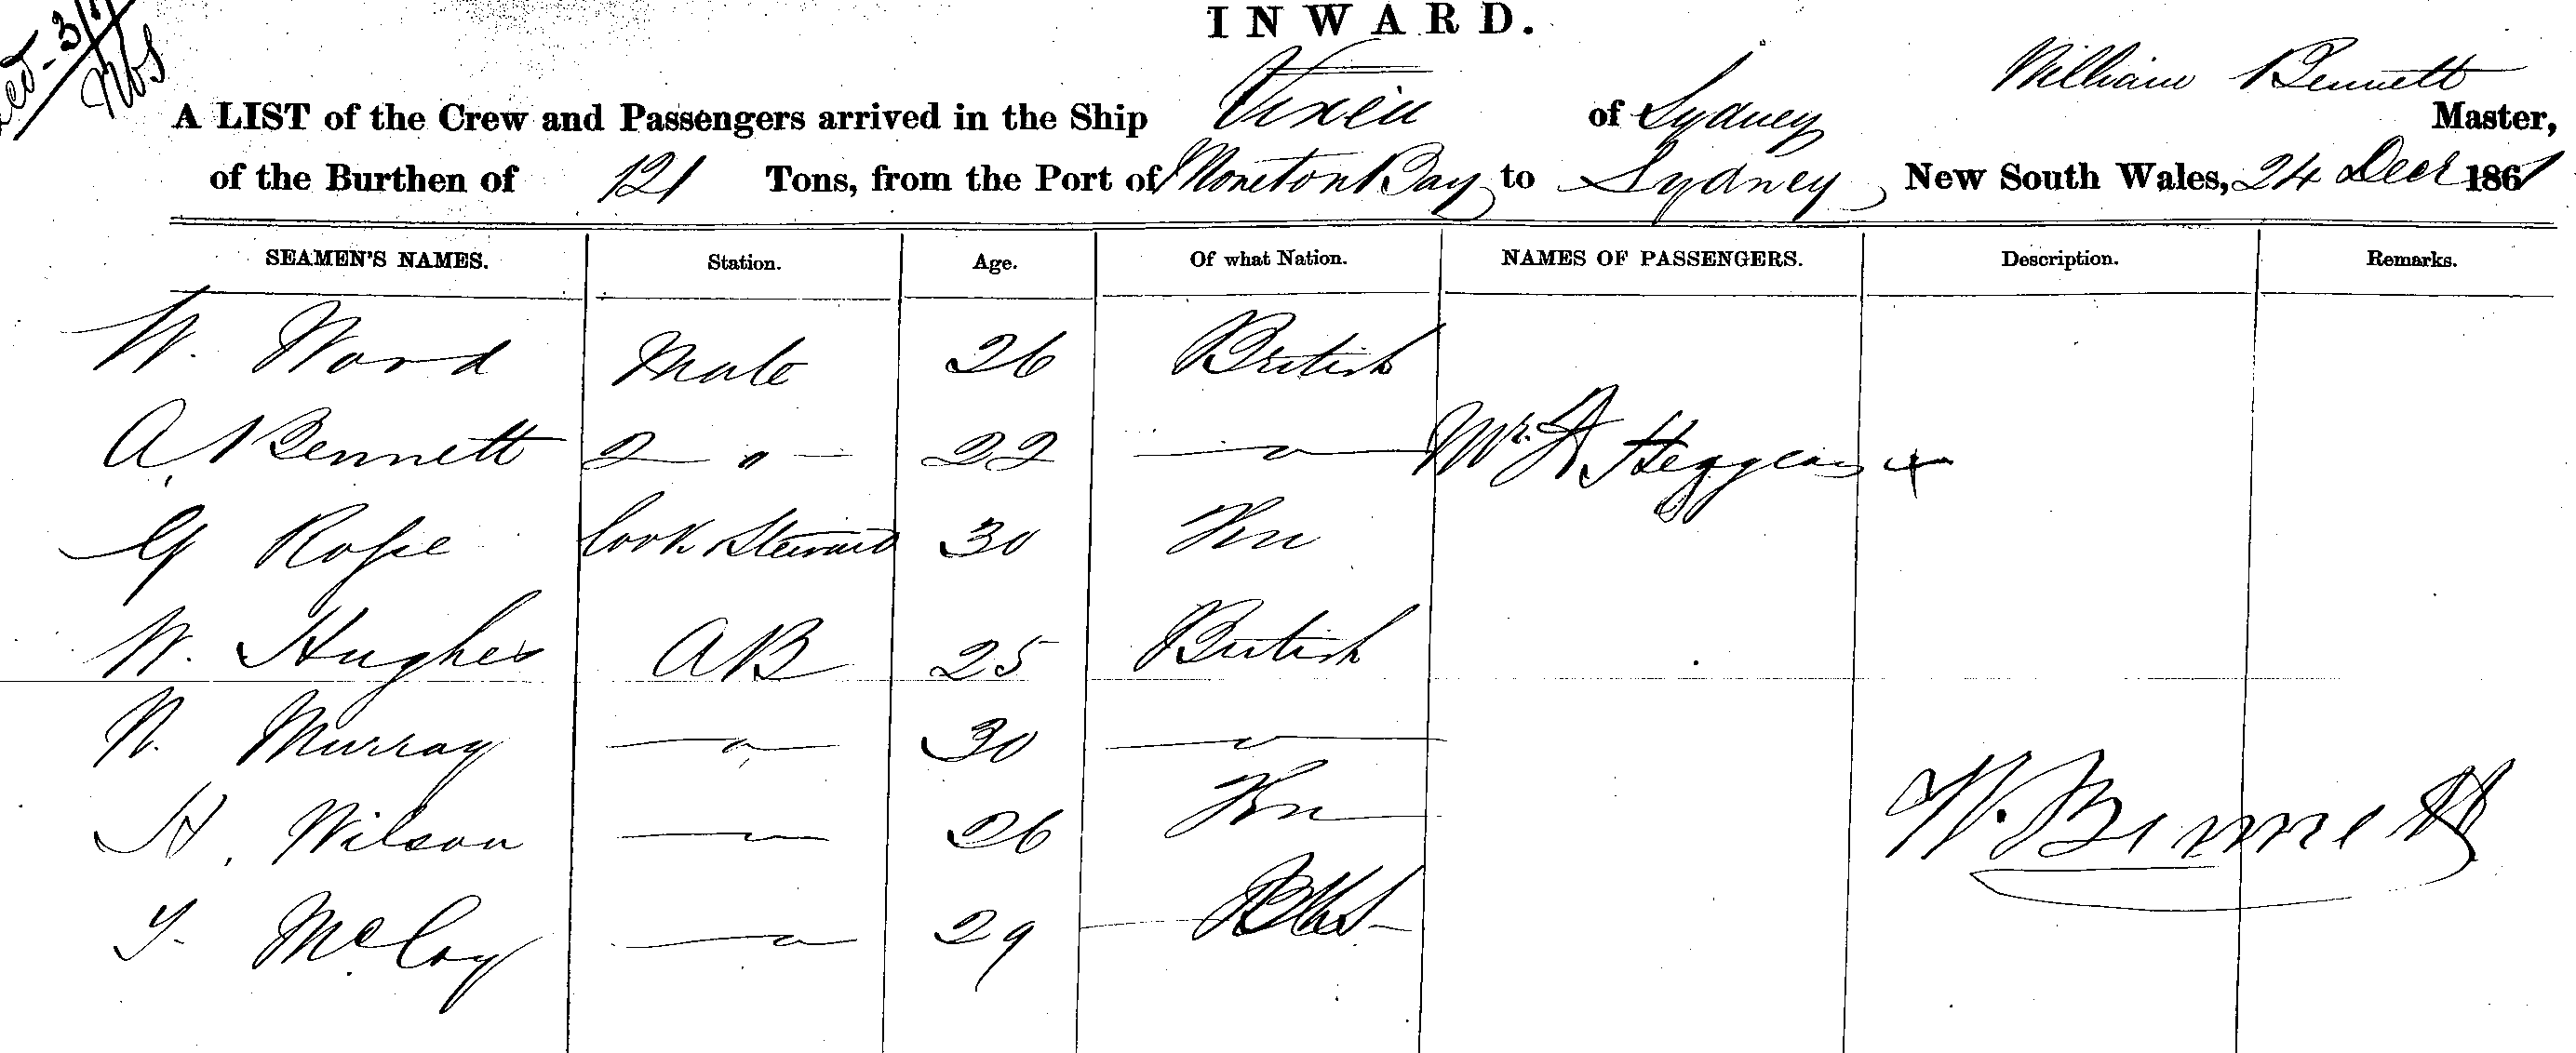 INWARD.
William Bennett
A LIST of the Crew and Passengers arrived in the Ship Vixen of Sydney Master,
of the Burthen of 121 Tons, from the Port of Moreton Bay to Sydney, New South Wales, 24 Decr 1861
SEAMEN'S NAMES. Station. Age. Of what Nation. NAMES OF PASSENGERS. Description. Remarks.
W. Ward Mate 26 British
A. Bennett 2 " 22 Mr. A
G Rose Cook Steward 30
W. Hughes AB 25 British
N. Murray 30
H. Wilson 26
McCoy 29
W. Bennett